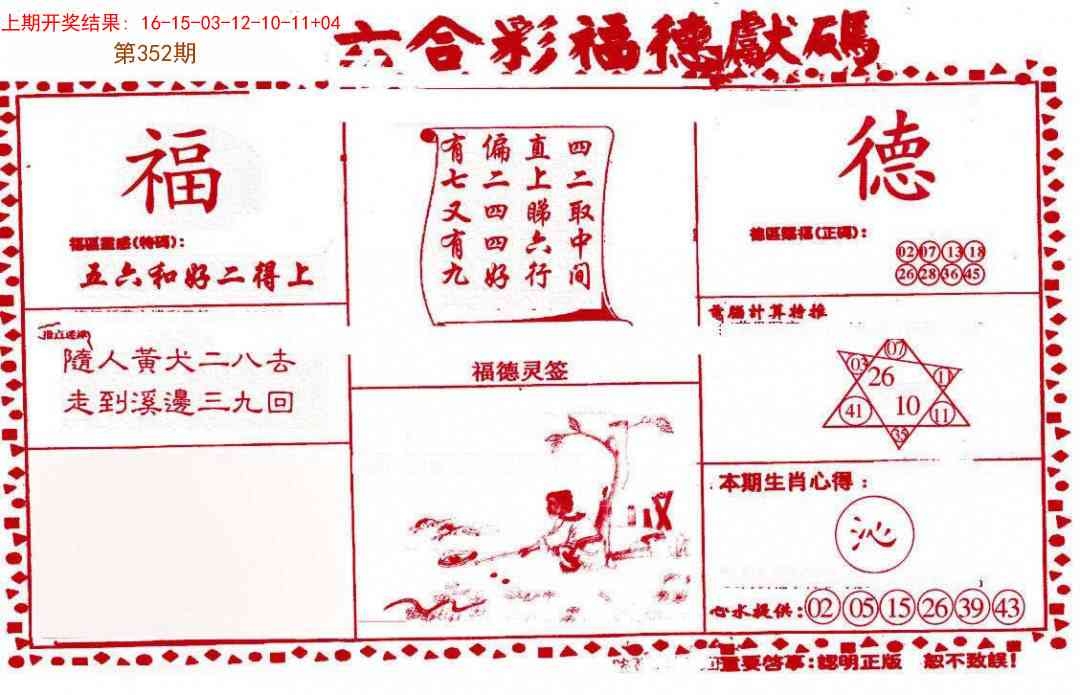 上期开奖结果：16-15-03-12-10-11+04
第352期
六合彩福德獻碼
福
福區靈感(特碼)：
五六和好二得上
隨人黃犬二八去
走到溪邊三九回
四二取中间
直上睇六行
偏二四四好
有七又有九
福德灵签
德
德區賜福(正碼)：
02 07 13 18
26 28 36 45
電腦計算特推
07
03 26 11
41 10 11
35
本期生肖心得：
沁
心水提供：02 05 15 26 39 43
重要啓事：認明正版 恕不致誤！